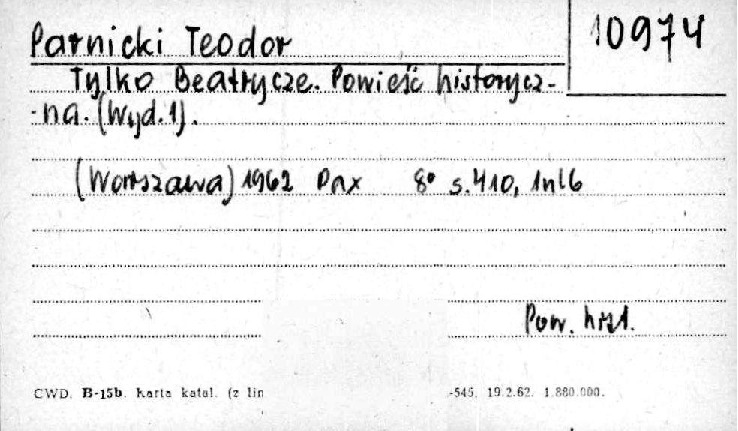 Parnicki Teodor
10974
Tylko Beatrycze. Powieść historycz-
-na. (Wyd. 1).
(Warszawa) 1962 Pax 8° s. 410, 1nlb
Pow. hist.
CWD. B-15b. Karta katal. (z lin
-545. 19.2.62. 1.880.000.